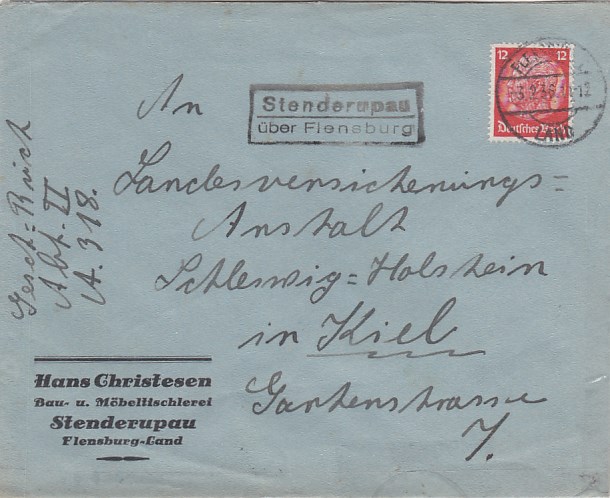 12 12
Deutsches Reich
LAND
Stenderupau
über Flensburg
An
Landesversicherungs=
Anstalt
Schleswig=Holstein
in Kiel
Gartenstrasse
7.
Gesch=Buch
Abt. II
A. 318.
Hans Christesen
Bau- u. Möbeltischlerei
Stenderupau
Flensburg-Land